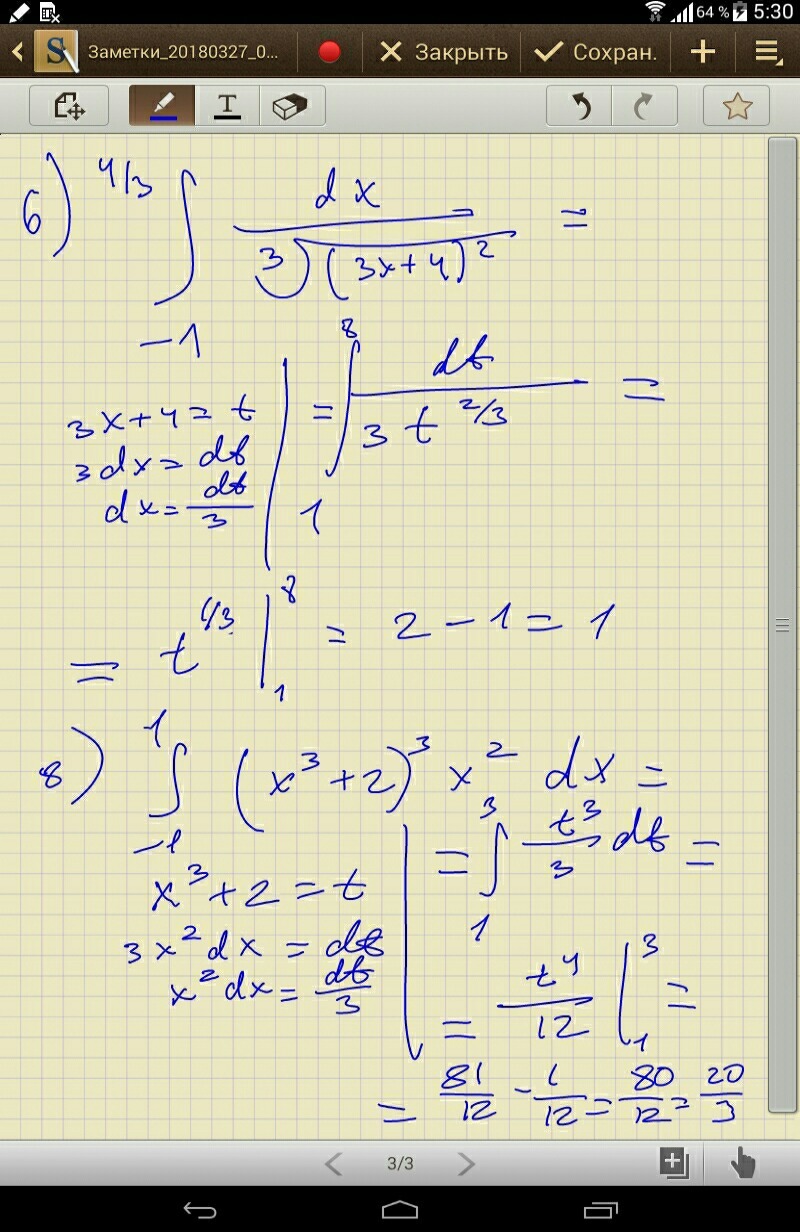 64 % 5:30
Заметки_20180327_0... Закрыть Сохран. +
T
6) ∫_{-1}^{4/3} dx / ∛(3x+4)^2 =
3x+4 = t
3dx = dt
dx = dt/3
= ∫_1^8 dt / 3t^{2/3} =
= t^{1/3} |_1^8 = 2 - 1 = 1
8) ∫_{-1}^1 (x^3+2)^3 x^2 dx =
x^3+2 = t
3x^2 dx = dt
x^2 dx = dt/3
= ∫_1^3 t^3/3 dt =
= t^4/12 |_1^3 =
= 81/12 - 1/12 = 80/12 = 20/3
3/3